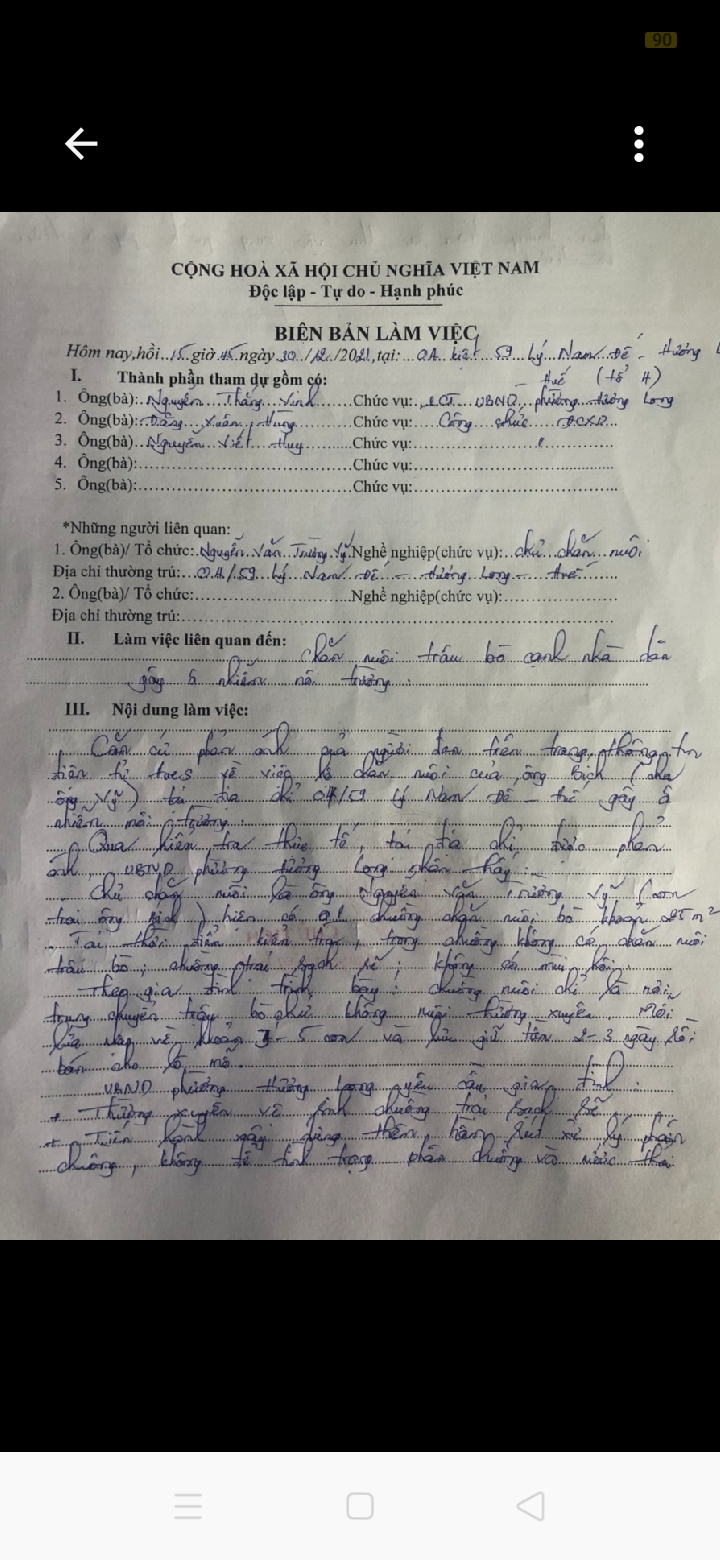 90
CỘNG HOÀ XÃ HỘI CHỦ NGHĨA VIỆT NAM
Độc lập - Tự do - Hạnh phúc
BIÊN BẢN LÀM VIỆC
Hôm nay, hồi 15 giờ 45 ngày 30/12/2021, tại: 02A kiệt 59 Lý Nam Đế - Hương
I. Thành phần tham dự gồm có: - Huế (tổ 4)
1. Ông(bà): Nguyễn Thắng Vinh Chức vụ: UBND phường Hương Long
2. Ông(bà): Đặng Xuân Hùng Chức vụ: Công chức ĐCXD
3. Ông(bà): Nguyễn Viết Huy Chức vụ:
4. Ông(bà): Chức vụ:
5. Ông(bà): Chức vụ:
*Những người liên quan:
1. Ông(bà)/ Tổ chức: Nguyễn Văn Trường Vỹ Nghề nghiệp(chức vụ): chủ chăn nuôi
Địa chỉ thường trú: 02A/59 Lý Nam Đế - Hương Long - Huế
2. Ông(bà)/ Tổ chức: Nghề nghiệp(chức vụ):
Địa chỉ thường trú:
II. Làm việc liên quan đến: Chăn nuôi trâu bò cạnh nhà dân
gây ô nhiễm môi trường
III. Nội dung làm việc:
Căn cứ phản ánh của người dân trên trang thông tin
điện tử về việc hộ chăn nuôi của ông Bích (cha
ông Vỹ) tại địa chỉ 59 Lý Nam Đế - Huế gây ô
nhiễm môi trường.
Qua kiểm tra thực tế, tại địa chỉ được phản
ánh, UBND phường Hương Long nhận thấy:
- Chủ chăn nuôi là ông Nguyễn Văn Trường Vỹ (con
trai ông Bích) hiện có 01 chuồng chăn nuôi bò khoảng 25 m²
- Tại thời điểm kiểm tra, trong chuồng không có chăn nuôi
trâu bò; chuồng trại sạch sẽ; không có mùi hôi.
- Theo gia đình trình bày: chuồng nuôi chỉ là nơi
trung chuyển trâu bò chứ không nuôi thường xuyên. Mỗi
lứa nhập về khoảng 3-5 con và lưu giữ tầm 2-3 ngày rồi
bán cho lò mổ.
UBND phường Hương Long yêu cầu gia đình:
+ Thường xuyên vệ sinh chuồng trại sạch sẽ.
+ Tiến hành xây dựng thêm hầm rút xử lý phân
chuồng, không để tình trạng phân chuồng và nước thải